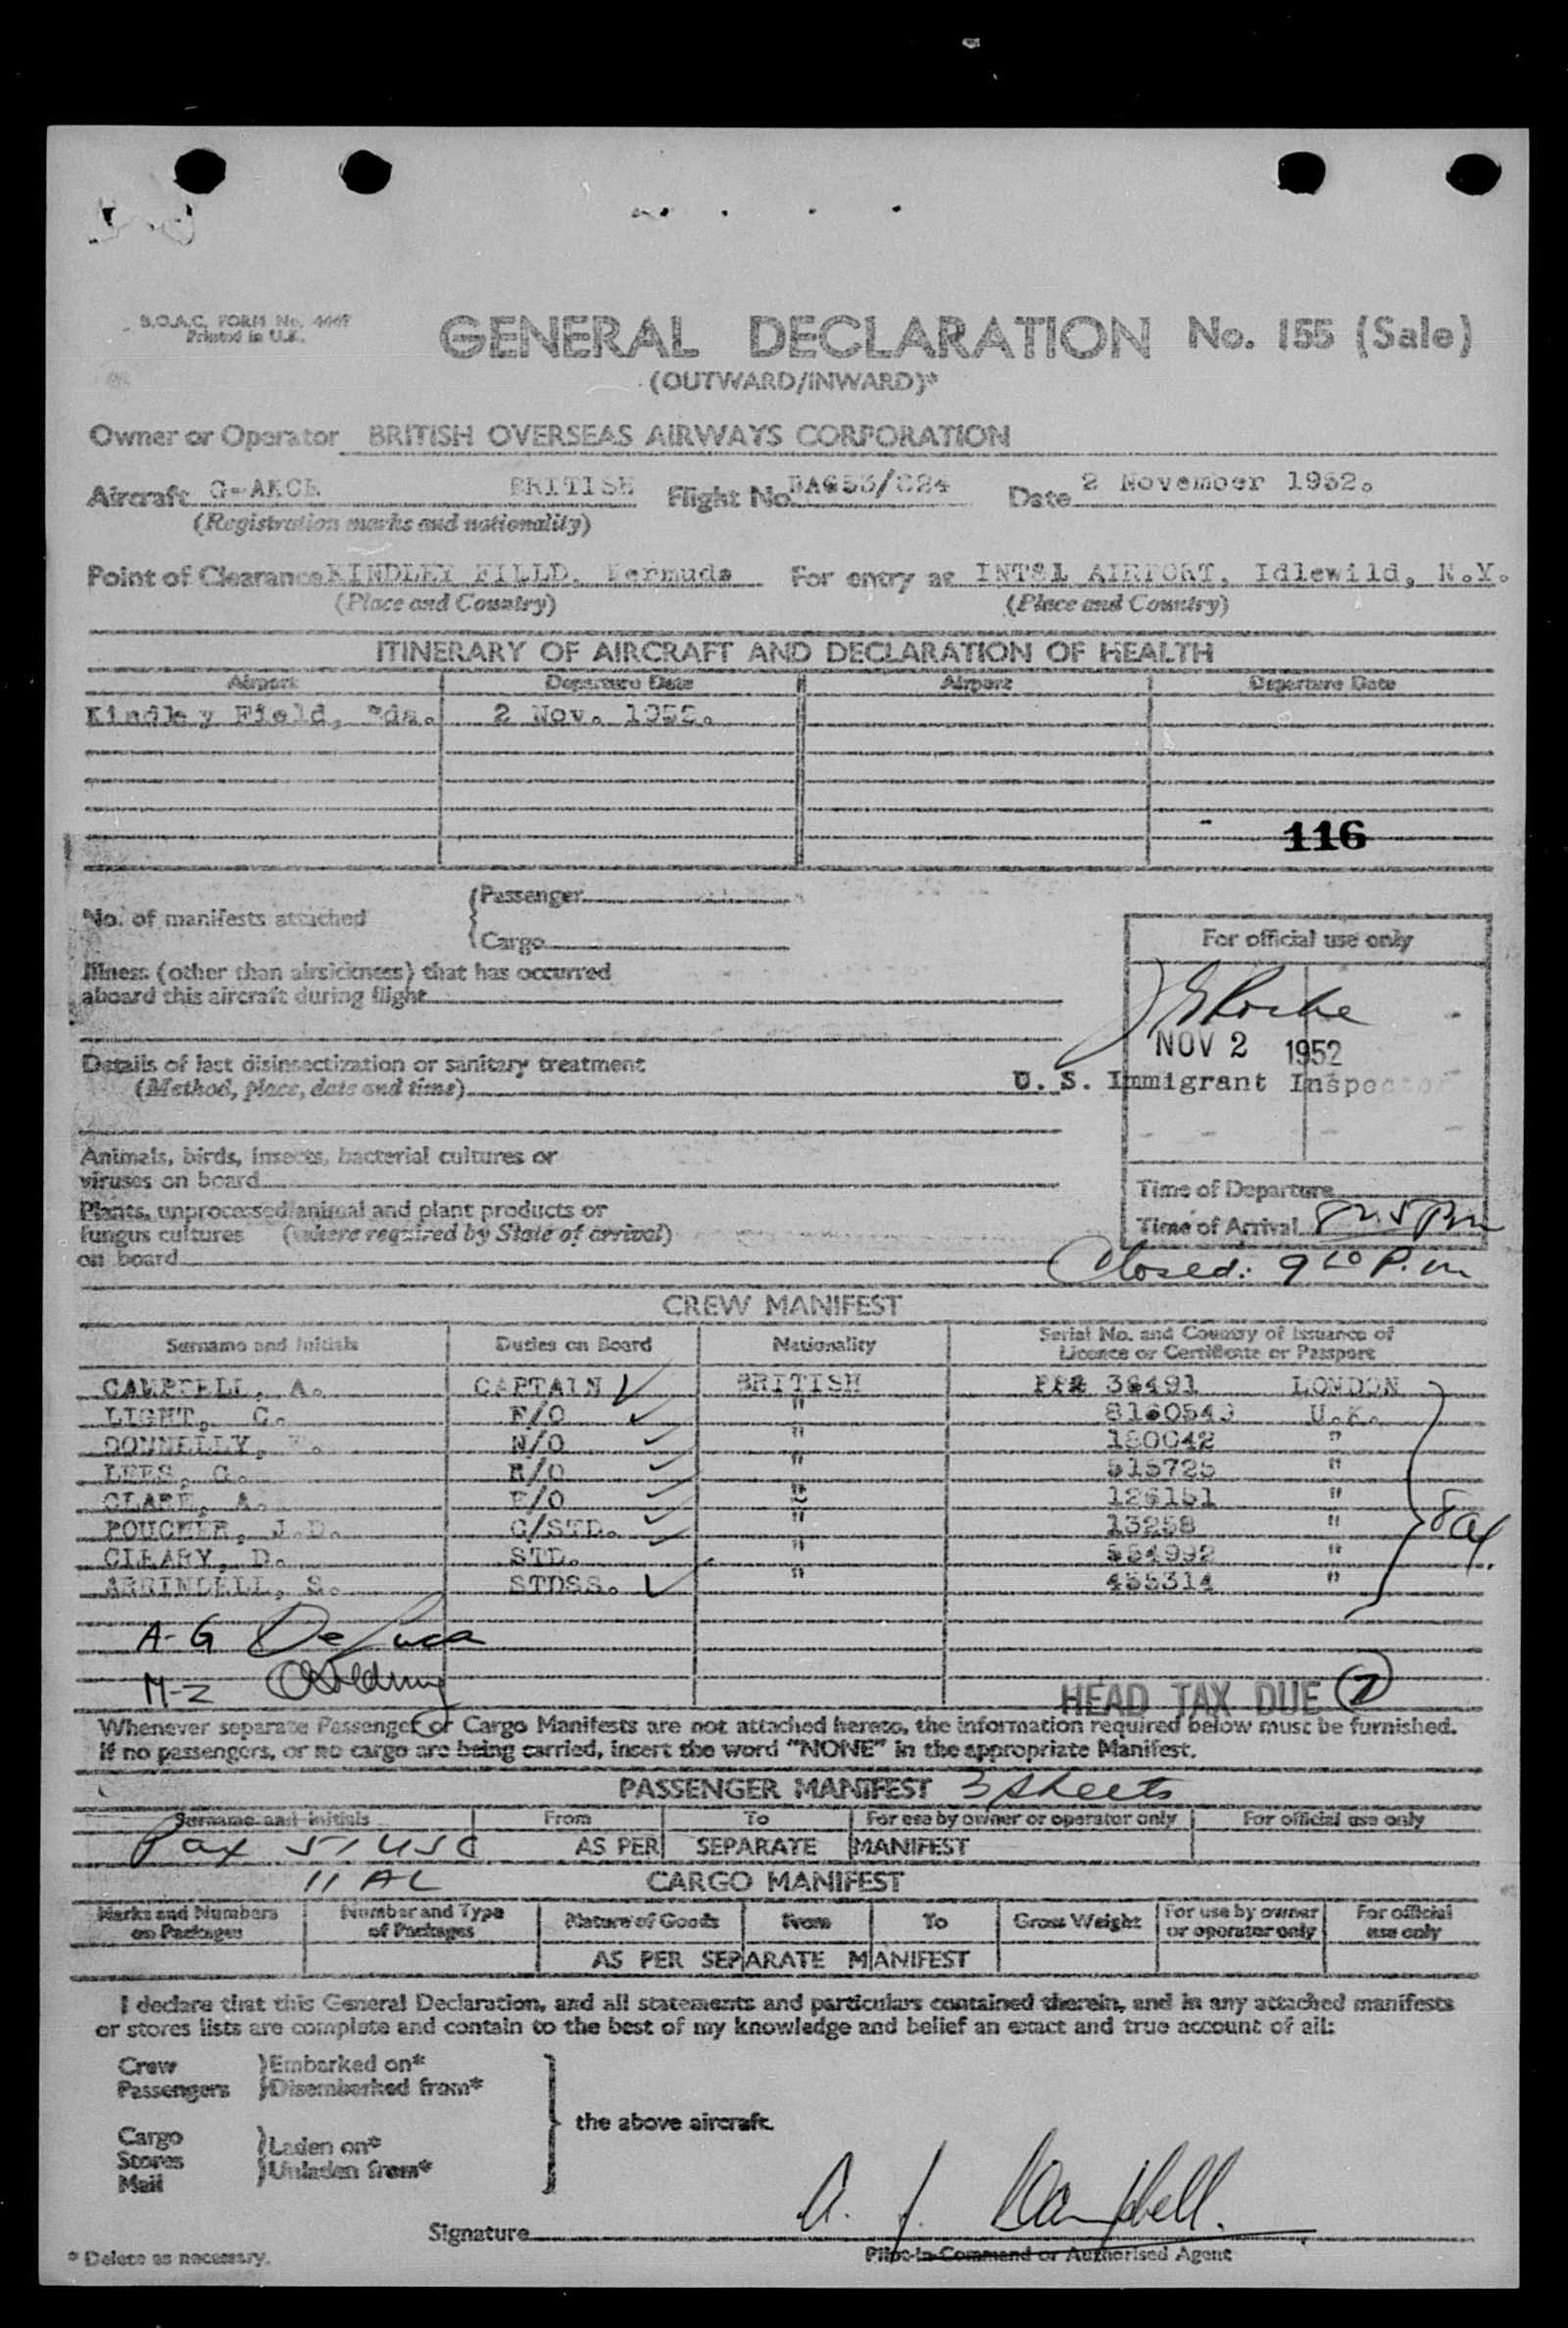 B.O.A.C. FORM No. 4447
Printed in U.K.
GENERAL DECLARATION No. 155 (Sale)
(OUTWARD/INWARD)*
Owner or Operator BRITISH OVERSEAS AIRWAYS CORPORATION
Aircraft BRITISH Flight No. Date 2 November 1952.
(Registration marks and nationality)
Point of Clearance KINDLEY FIELD, Bermuda For entry at AIRPORT, Idlewild, N.Y.
(Place and Country) (Place and Country)
ITINERARY OF AIRCRAFT AND DECLARATION OF HEALTH
Airport Departure Date Airport Departure Date
Kindley Field, 2 Nov. 1952.
116
No. of manifests attached
Passenger
Cargo
For official use only
Illness (other than airsickness) that has occurred
aboard this aircraft during flight
NOV 2 1952
Details of last disinsectization or sanitary treatment
(Method, place, date and time)
U. S. Immigrant Inspector
Animals, birds, insects, bacterial cultures or
viruses on board
Time of Departure
Plants, unprocessed animal and plant products or
fungus cultures (where required by State of arrival)
on board
Time of Arrival
Closed: 9 10 P.m
CREW MANIFEST
Surname and Initials Duties on Board Nationality Serial No. and Country of Issuance of
Licence or Certificate or Passport
CAMPBELL, A. CAPTAIN BRITISH 36491 LONDON
LIGHT, C. F/O " 8160543 U.K.
DONNELLY, N/O " 180042 "
LEES, G. R/O " 515725 "
CLARE, A. E/O " 126151 "
POUCHER, J.D. C/STD. " 13258 "
CLEARY, D. STD. " 554992 "
ARRINDELL, S. STDSS. " 455314 "
A-G De Luca
M-Z
HEAD TAX DUE
Whenever separate Passenger or Cargo Manifests are not attached hereto, the information required below must be furnished.
If no passengers, or no cargo are being carried, insert the word "NONE" in the appropriate Manifest.
PASSENGER MANIFEST 3 sheets
Surname and Initials From To For use by owner or operator only For official use only
Pax 51 USC AS PER SEPARATE MANIFEST
11 AL
CARGO MANIFEST
Marks and Numbers on Packages Number and Type of Packages Nature of Goods From To Gross Weight For use by owner or operator only For official use only
AS PER SEPARATE MANIFEST
I declare that this General Declaration, and all statements and particulars contained therein, and in any attached manifests
or stores lists are complete and contain to the best of my knowledge and belief an exact and true account of all:
Crew Embarked on*
Passengers Disembarked from*
the above aircraft.
Cargo
Stores
Mail
Laden on*
Unladen from*
Signature A. J. Campbell.
Pilot-in-Command or Authorised Agent
* Delete as necessary.